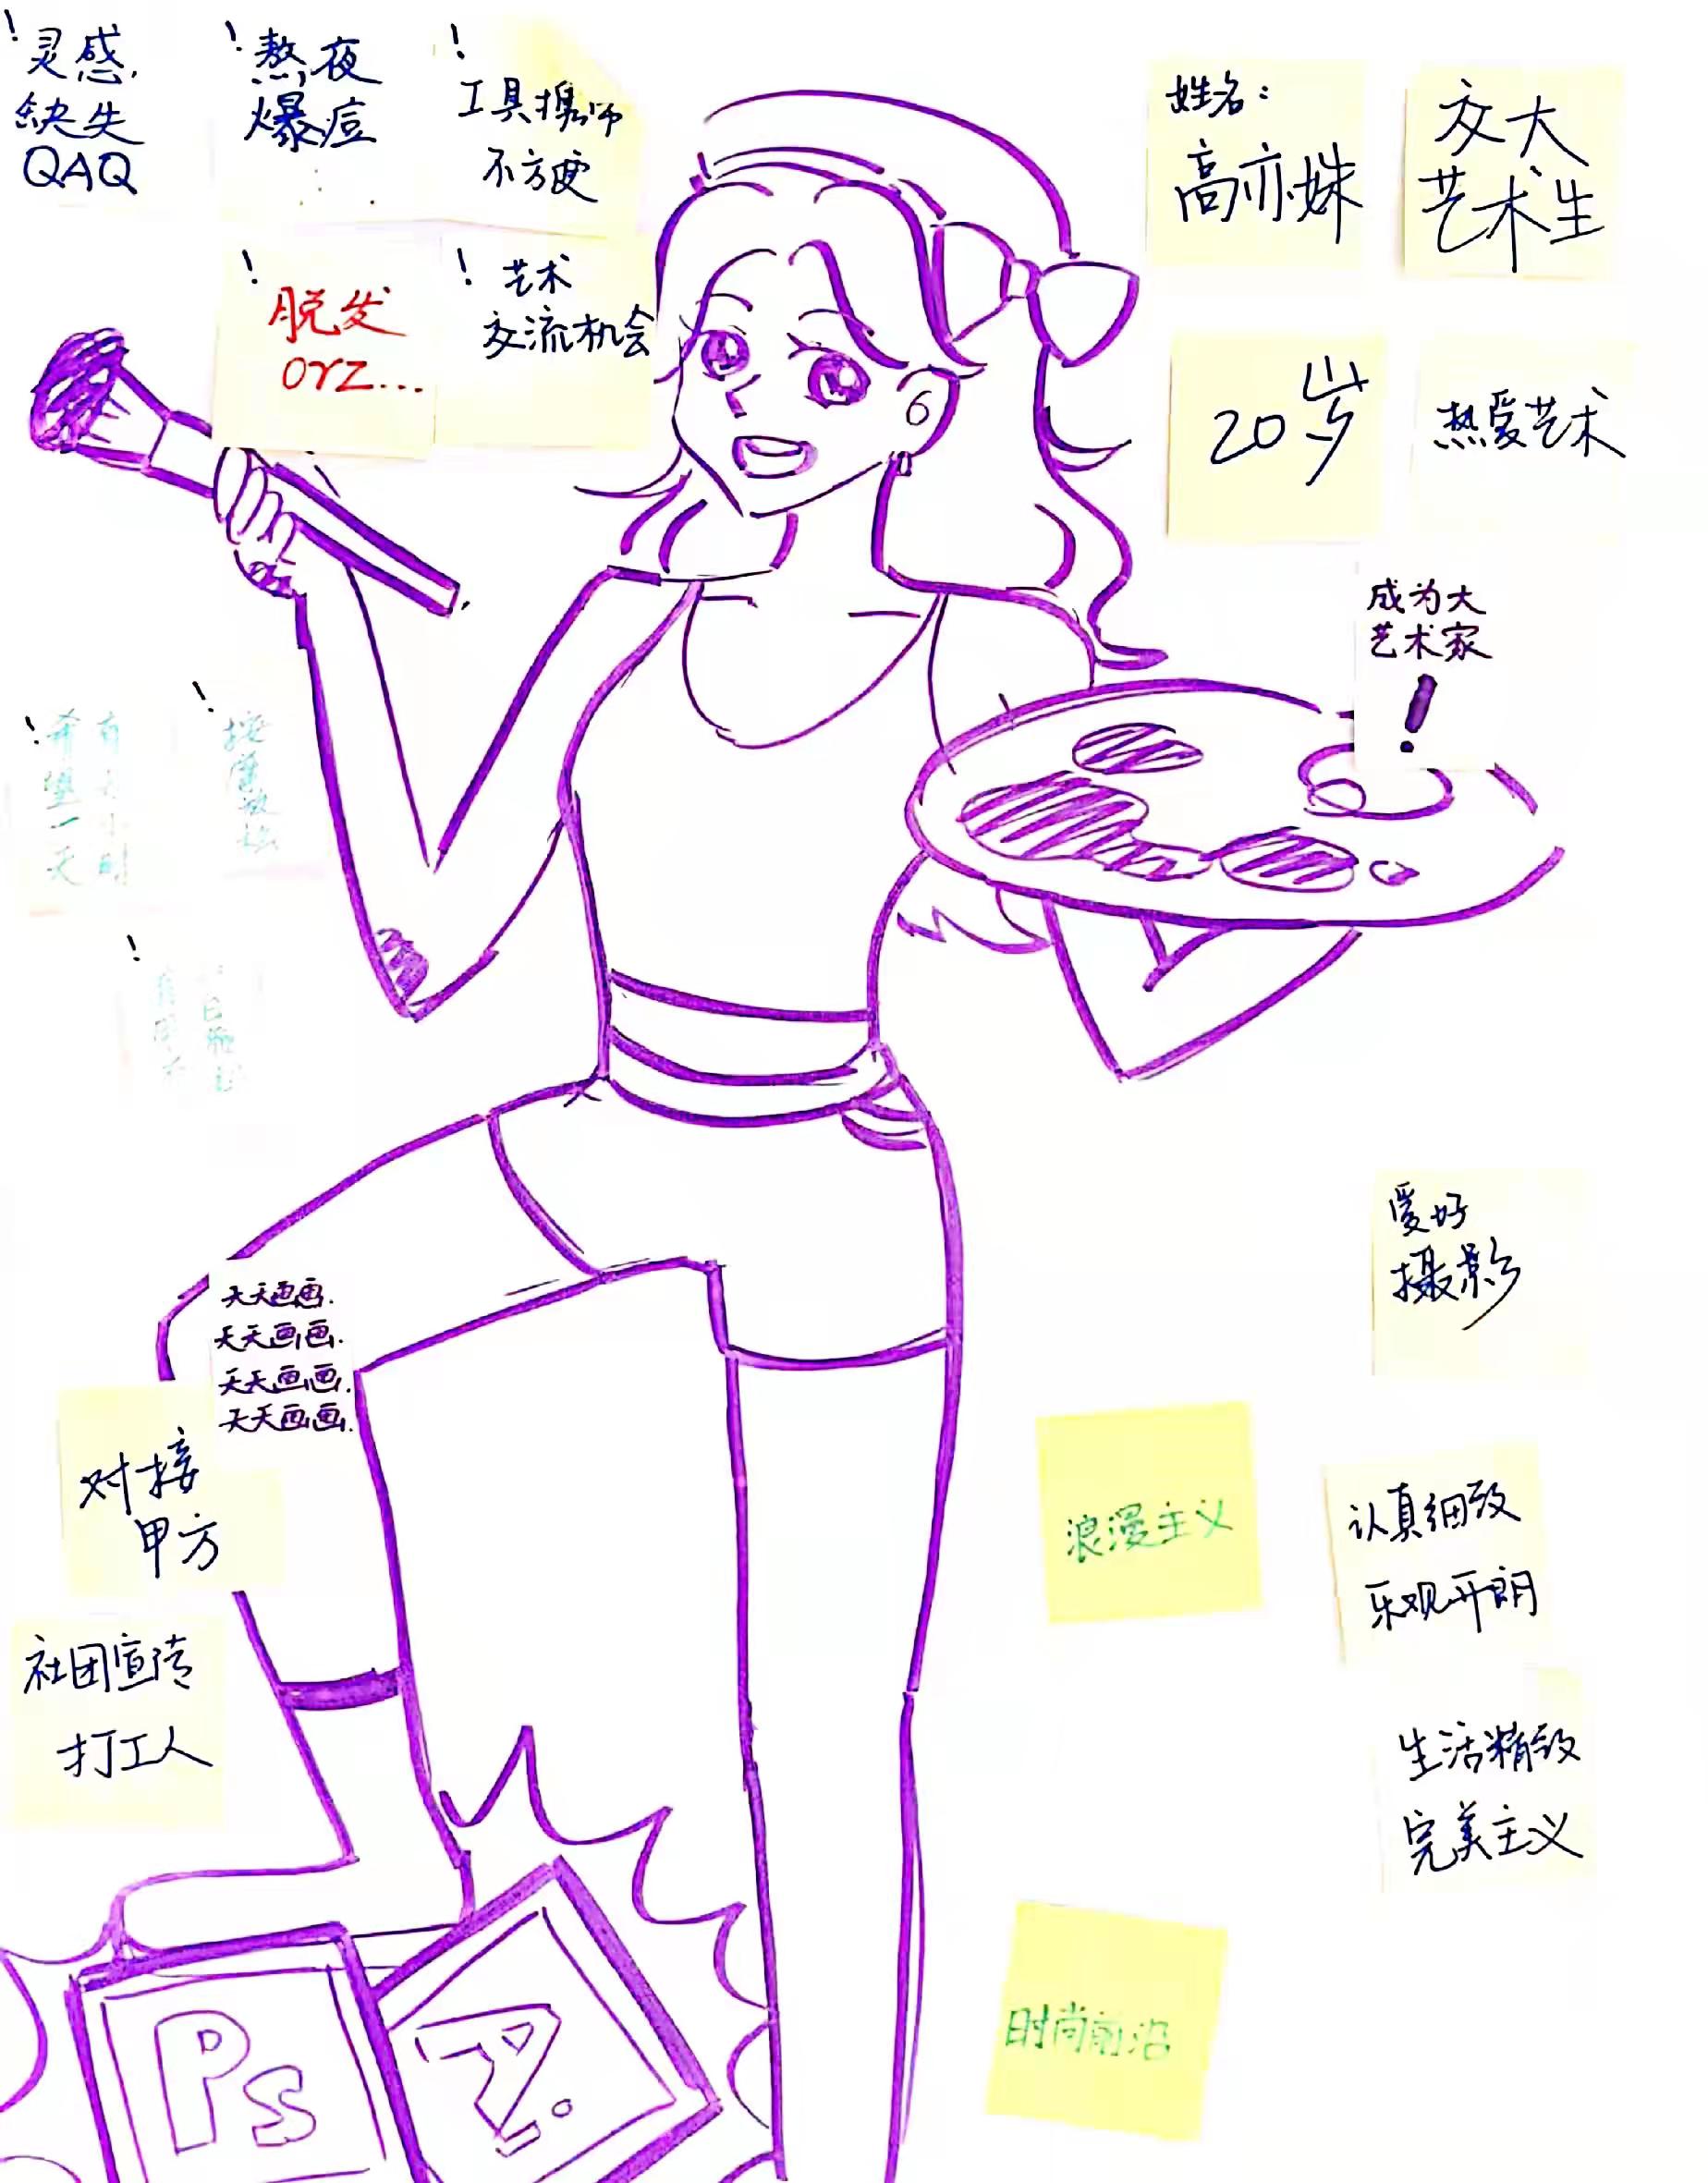 !
灵感
缺失
QAQ
!
熬夜
爆痘
!
工具携带
不方便
!
脱发
orz...
!
艺术
交流机会
姓名:
高亦姝
交大
艺术生
20岁
热爱艺术
成为大
艺术家
!
!
希望一天
!
!
天天画画.
天天画画.
天天画画.
天天画画.
对接
甲方
社团宣传
打工人
爱好
摄影
浪漫主义
认真细致
乐观开朗
生活精致
完美主义
时尚前沿
Ps